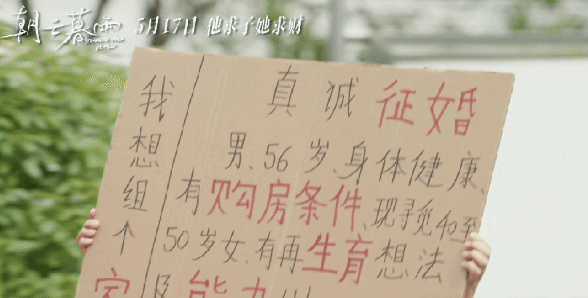 朝云暮雨
5月17日 他求子她求财
我想组个家
真诚征婚
男、56岁、身体健康、
有购房条件、现寻觅40至
50岁女、有再生育想法
及能力